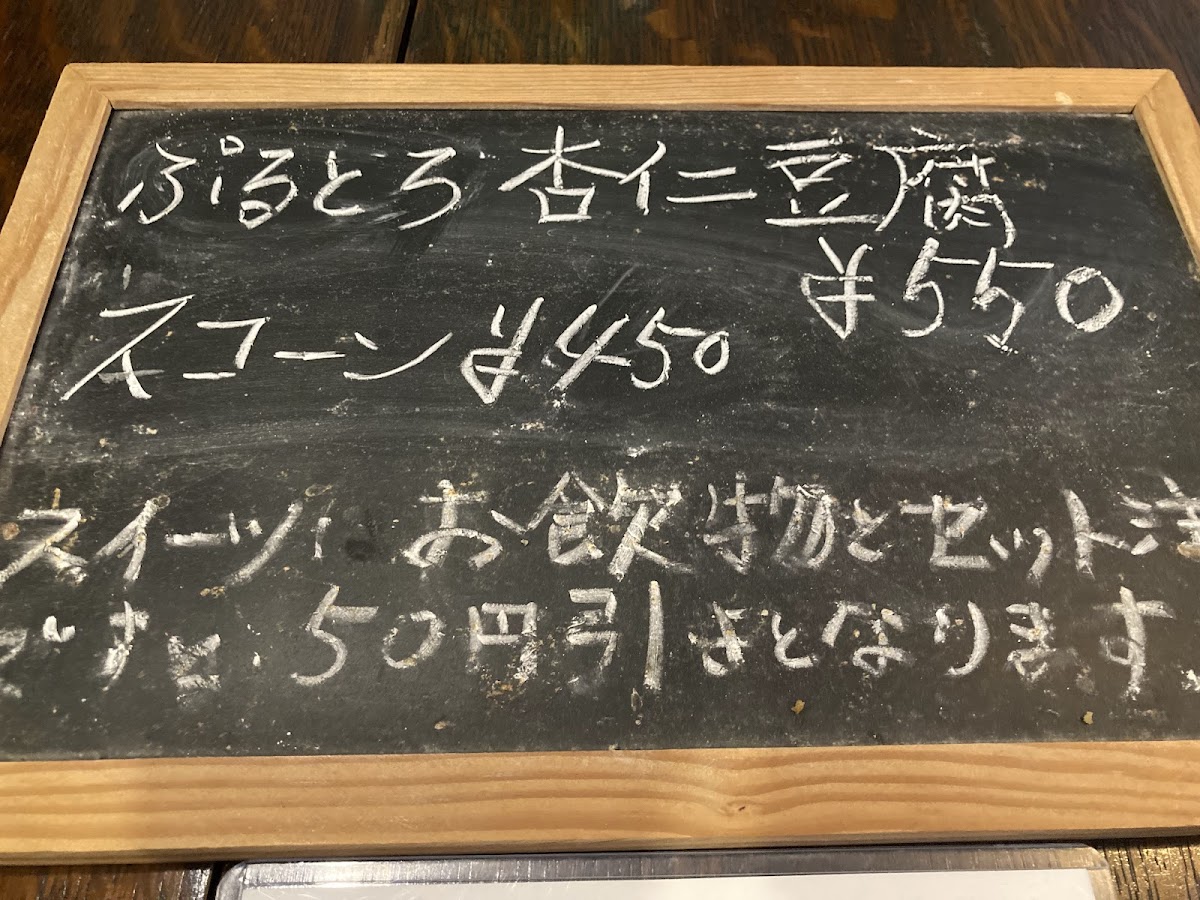 ぷるとろ 杏仁豆腐
¥550
スコーン ¥450
スイーツ: お飲物とセット注
ですと、50円引きとなります